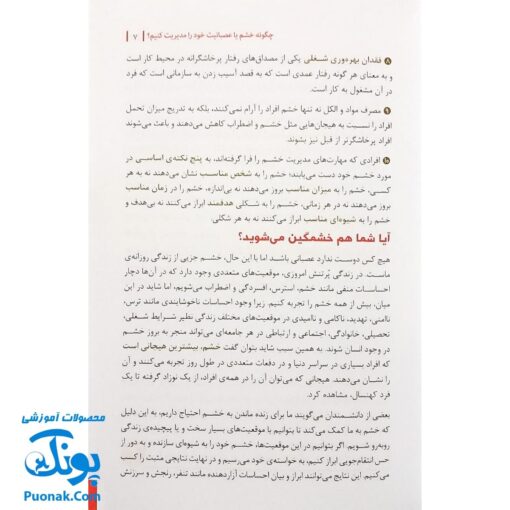 چگونه خشم یا عصبانیت خود را مدیریت کنیم؟ | ۷
۸ فقدان بهره‌وری شغلی یکی از مصداق‌های رفتار پرخاشگرانه در محیط کار است
و به معنای هر گونه رفتار عمدی است که به قصد آسیب زدن به سازمانی است که فرد
در آن مشغول به کار است.
۹ مصرف مواد و الکل نه تنها خشم افراد را آرام نمی‌کنند، بلکه به تدریج میزان تحمل
افراد را نسبت به هیجان‌هایی مثل خشم و اضطراب کاهش می‌دهند و باعث می‌شوند
افراد پرخاشگرتر از قبل نیز بشوند.
۱۰ افرادی که مهارت‌های مدیریت خشم را فرا گرفته‌اند، به پنج نکته‌ی اساسی در
مورد خشم خود دست می‌یابند؛ خشم را به شخص مناسب نشان می‌دهند نه به هر
کسی، خشم را به میزان مناسب بروز می‌دهند نه بی‌اندازه، خشم را در زمان مناسب
بروز می‌دهند نه در هر زمانی، خشم را به شکلی هدفمند ابراز می‌کنند نه بی‌هدف و
خشم را به شیوه‌ای مناسب ابراز می‌کنند نه به هر شکلی.
آیا شما هم خشمگین می‌شوید؟
هیچ کس دوست ندارد عصبانی باشد اما با این حال، خشم جزیی از زندگی روزانه‌ی
ماست. در زندگی پُرتنش امروزی، موقعیت‌های متعددی وجود دارد که در آن‌ها دچار
احساسات منفی مانند خشم، استرس، افسردگی و اضطراب می‌شویم، اما شاید در این
میان، بیش از همه خشم را تجربه کنیم. زیرا وجود احساسات ناخوشایندی مانند ترس،
ناامنی، تهدید، ناکامی و ناامیدی در موقعیت‌های مختلف زندگی نظیر شرایط شغلی،
تحصیلی، خانوادگی، اجتماعی و ارتباطی در هر جامعه‌ای می‌تواند منجر به بروز خشم
در وجود انسان شوند. به همین سبب شاید بتوان گفت خشم، بیشترین هیجانی است
که افراد بسیاری در سراسر دنیا و در دفعات متعددی در طول روز تجربه می‌کنند و آن
را نشان می‌دهند. هیجانی که می‌توان آن را در همه‌ی افراد، از یک نوزاد گرفته تا یک
فرد کهنسال، مشاهده کرد.
بعضی از دانشمندان می‌گویند ما برای زنده ماندن به خشم احتیاج داریم، به این دلیل
که خشم به ما کمک می‌کند تا بتوانیم با موقعیت‌های بسیار سخت و یا پیچیده‌ی زندگی
روبه‌رو شویم. اگر بتوانیم در این موقعیت‌ها، خشم خود را به شیوه‌ای سازنده و به دور از
حس انتقام‌جویی ابراز کنیم، به خواسته‌ی خود می‌رسیم و در نهایت نتایجی مثبت را کسب
می‌کنیم. این نتایج می‌توانند ابراز و بیان احساسات آزاردهنده مانند تنفر، رنجش و سرزنش
محصولات آموزشی
پونک
Puonak.Com